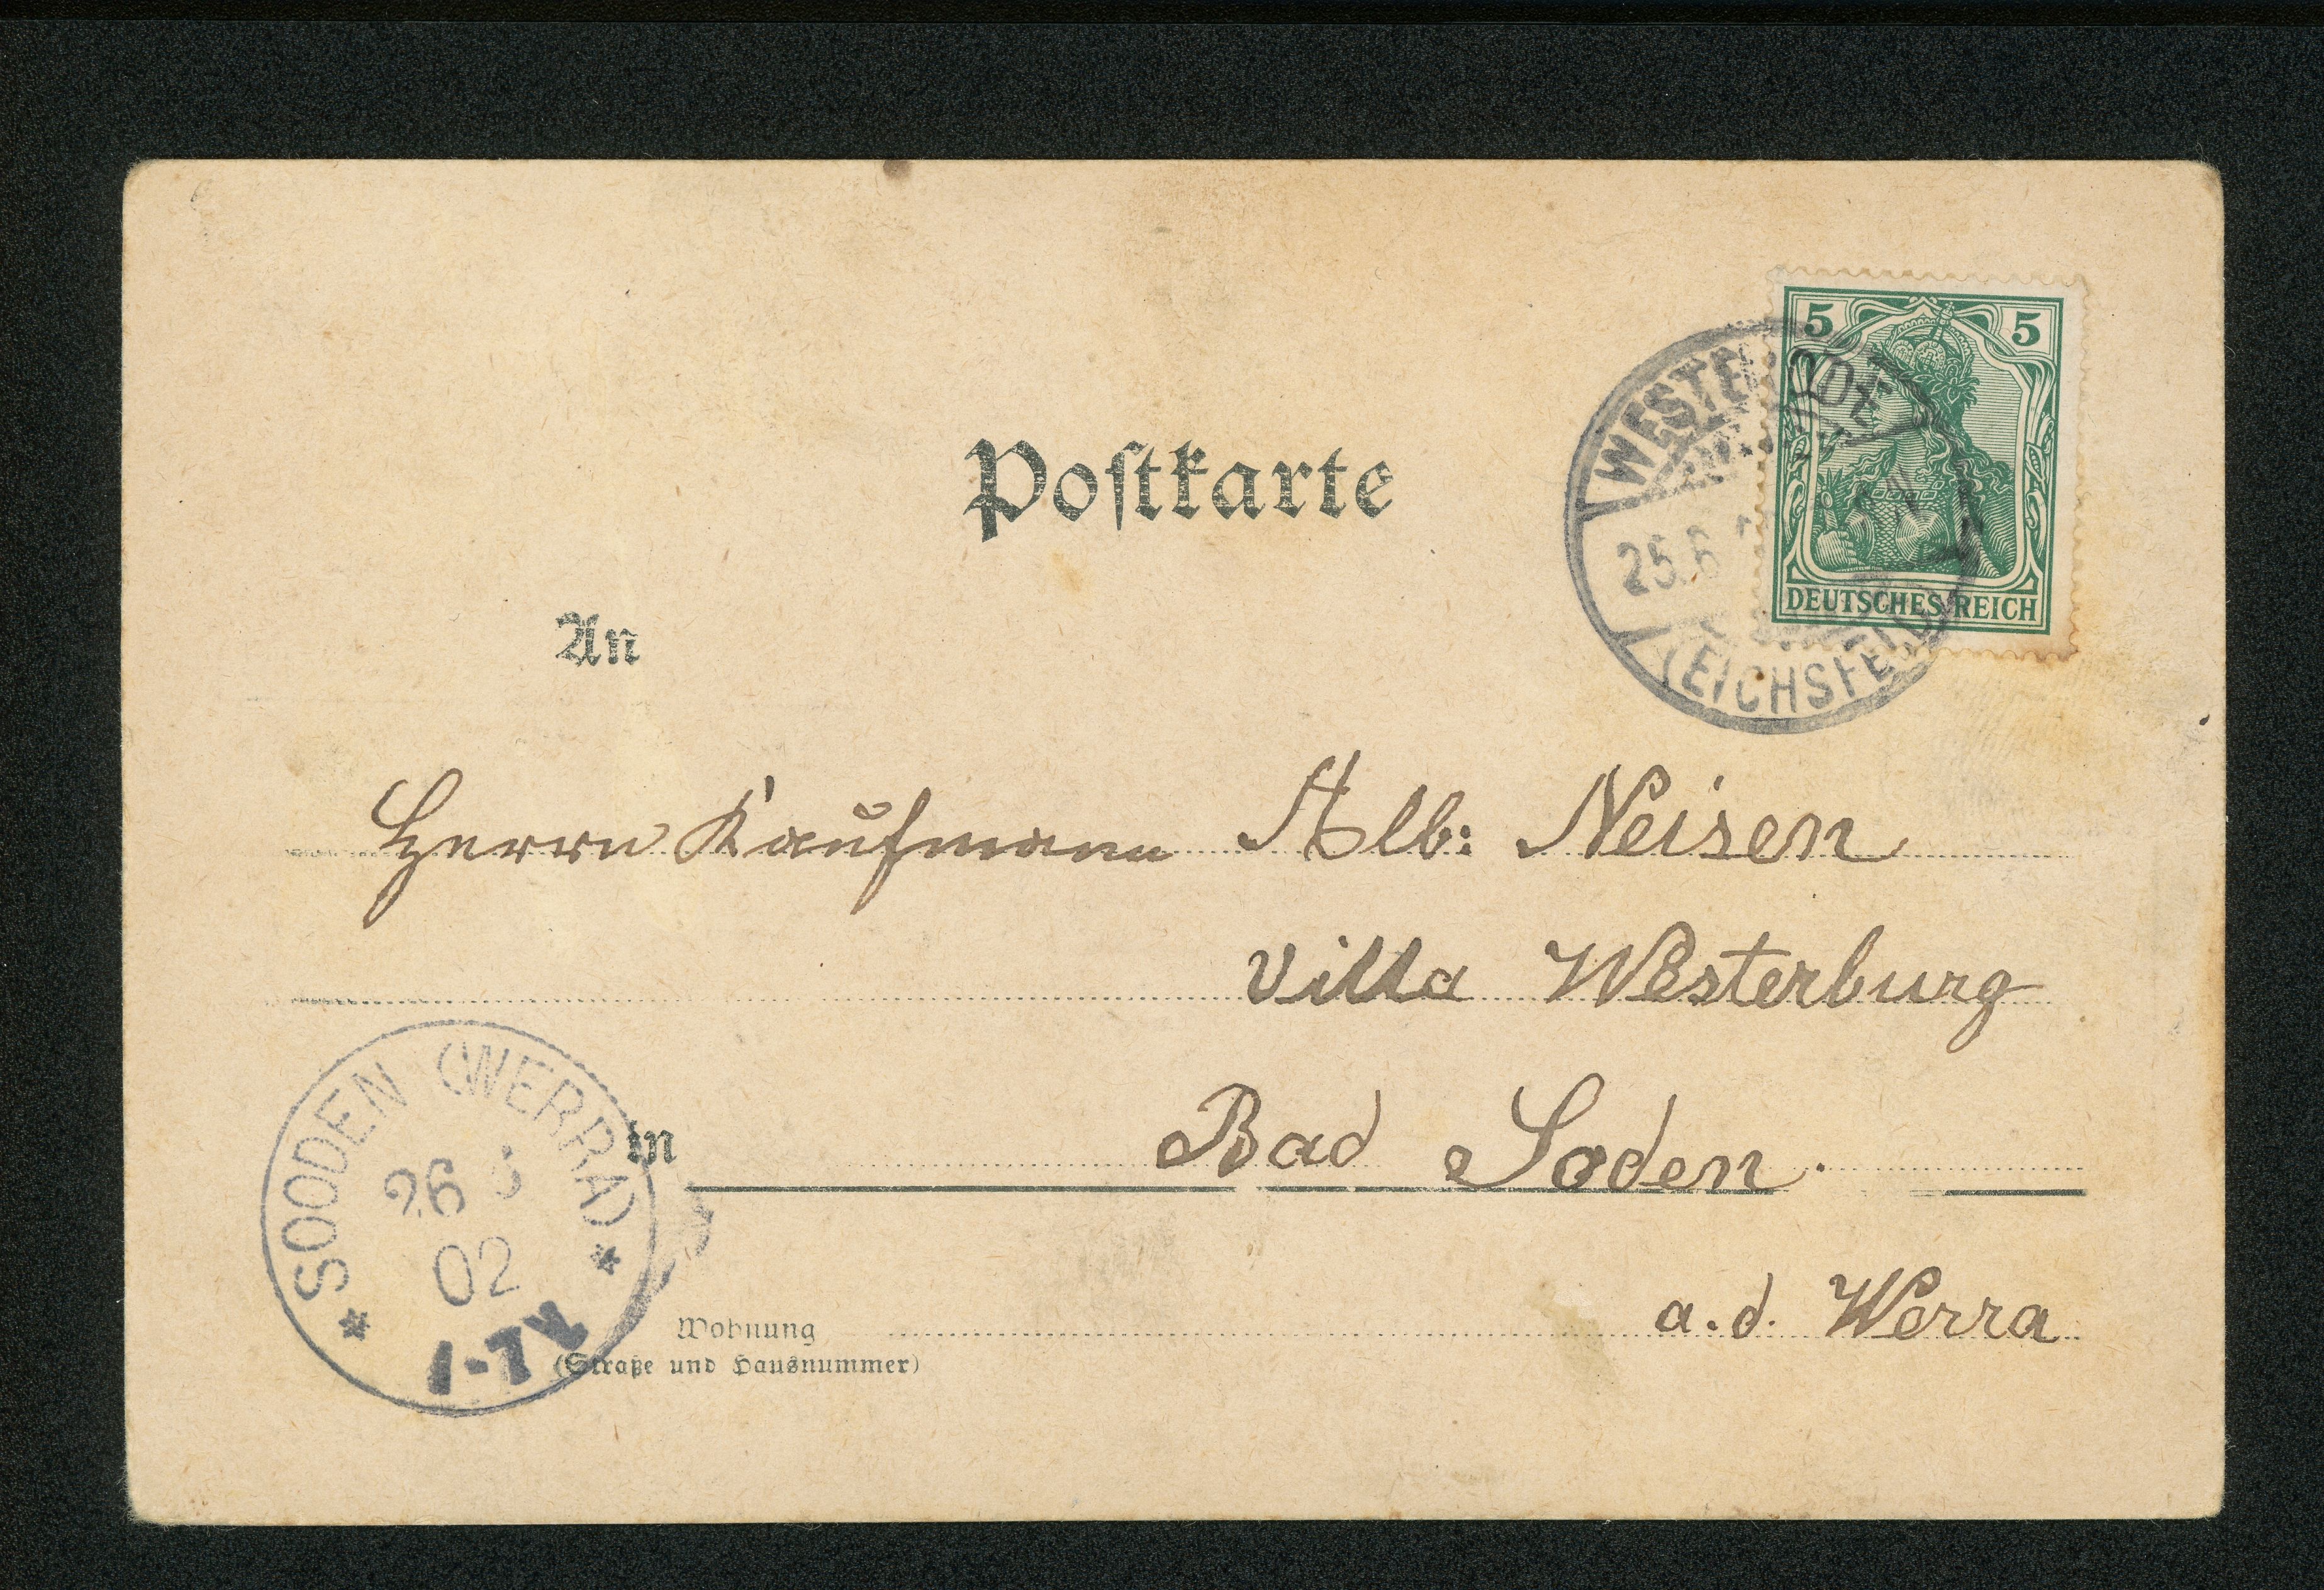 Postkarte
5 5
DEUTSCHES REICH
WESTE ODE
25.6
(EICHSFELD)
An
Herrn Kaufmann Alb: Neisen
Villa Westerburg
in Bad Soden.
a.d. Werra
SOODEN (WERRA)
26 6
02
1-7V
Wohnung
(Straße und Hausnummer)